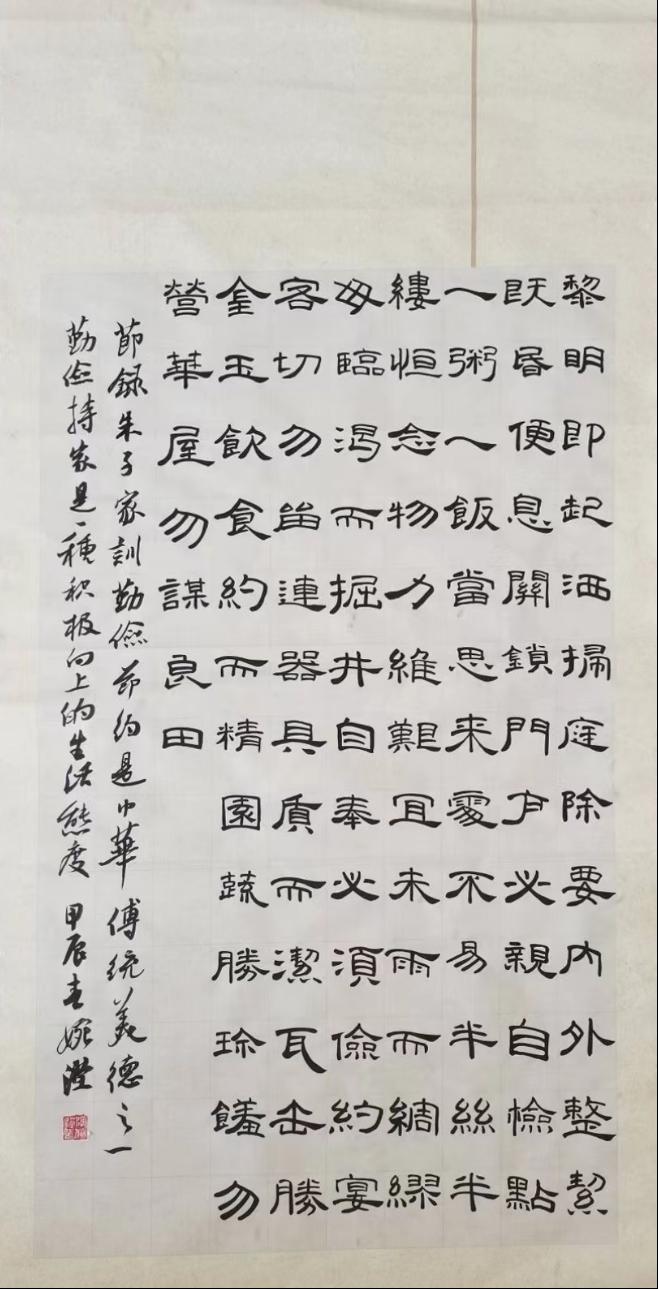 黎明即起洒掃庭除要内外整潔
既昏便息關鎖門户必親自檢點
一粥一飯當思来處不易半絲半
縷恒念物力維艱宜未雨而綢繆
毋臨渴而掘井自奉必須儉約宴
客切勿留連器具質而潔瓦缶勝
金玉飲食約而精園蔬勝珍饈勿
營華屋勿謀良田
節録朱子家訓勤儉節約是中華傳統美德之一
勤俭持家是一種积极向上的生活態度 甲辰春婉瀅